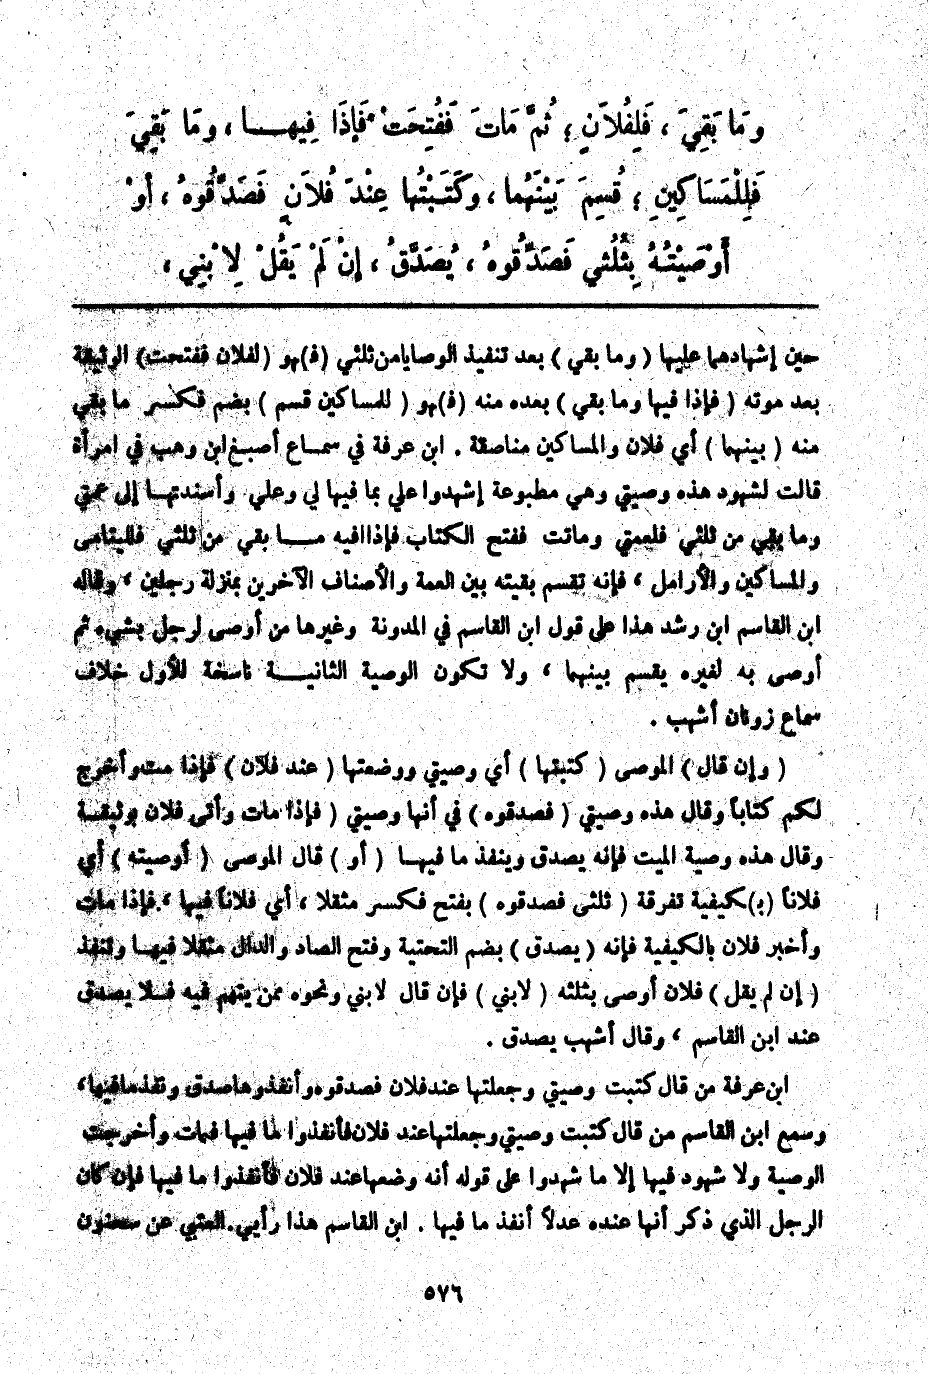 وَمَا بَقِيَ ، فَلِفُلَانٍ ؛ ثُمَّ مَاتَ فَفُتِحَتْ فَإِذَا فِيهَا ، وَمَا بَقِيَ
فَلِلْمَسَاكِينِ ؛ قُسِمَ بَيْنَهُما ، وكَتَبْتُها عِنْدَ فُلَانٍ فَصَدِّقُوهُ ، أَوْ
أَوْصَيْتُهُ بِثُلُثي فَصَدِّقُوهُ ، يُصَدَّقُ ، إِنْ لَمْ يَقُلْ لِابْنِي ،
حين إشهادهما عليها ( وما بقي ) بعد تنفيذ الوصايا من ثلثي (ف)هو ( لفلان ففتحت) الوثيقة
بعد موته ( فإذا فيها وما بقي ) بعده منه (ف)هو ( للمساكين قسم ) بضم فكسر ما بقي
منه ( بينهما ) أي فلان والمساكين مناصفة . ابن عرفة في سماع أصبغ ابن وهب في امرأة
قالت لشهود هذه وصيتي وهي مطبوعة إشهدوا علي بما فيها لي وعلي وأسندتها إلى عمتي
وما بقي من ثلثي فلعمتي وماتت ففتح الكتاب فإذا فيه ما بقي من ثلثي فلليتامى
والمساكين والأرامل ، فإنه تقسم بقيته بين العمة والأصناف الآخرين بمنزلة رجلين ، وقاله
ابن القاسم ابن رشد هذا على قول ابن القاسم في المدونة وغيرها من أوصى لرجل بشيء ثم
أوصى به لغيره يقسم بينهما ، ولا تكون الوصية الثانية ناسخة للأول خلاف
سماع زونان أشهب .
( وإن قال ) الموصى ( كتبتها ) أي وصيتي ووضعتها ( عند فلان ) فإذا مت وأخرج
لكم كتاباً وقال هذه وصيتي ( فصدقوه ) في أنها وصيتي ( فإذا مات وأتى فلان بوثيقة
وقال هذه وصية الميت فإنه يصدق وينفذ ما فيها ( أو ) قال الموصى ( أوصيته ) أي
فلاناً (ب)كيفية تفرقة ( ثلثى فصدقوه ) بفتح فكسر مثقلا ، أي فلاناً فيها ، فإذا مات
وأخبر فلان بالكيفية فإنه ( يصدق ) بضم التحتية وفتح الصاد والدال مثقلا فيها وتنفذ
( إن لم يقل ) فلان أوصى بثلثه ( لابني ) فإن قال لابني ونحوه ممن يتهم فيه فلا يصدق
عند ابن القاسم ، وقال أشهب يصدق .
ابن عرفة من قال كتبت وصيتي وجعلتها عند فلان فصدقوه وأنفذوها صدق ونفذ ما فيها ،
وسمع ابن القاسم من قال كتبت وصيتي وجعلتها عند فلان فأنفذوا ما فيها فمات وأخرجت
الوصية ولا شهود فيها إلا ما شهدوا على قوله أنه وضعها عند فلان فأنفذوا ما فيها فإن كان
الرجل الذي ذكر أنها عنده عدلاً أنفذ ما فيها . ابن القاسم هذا رأيي . العتبي عن سحنون
٥٧٦